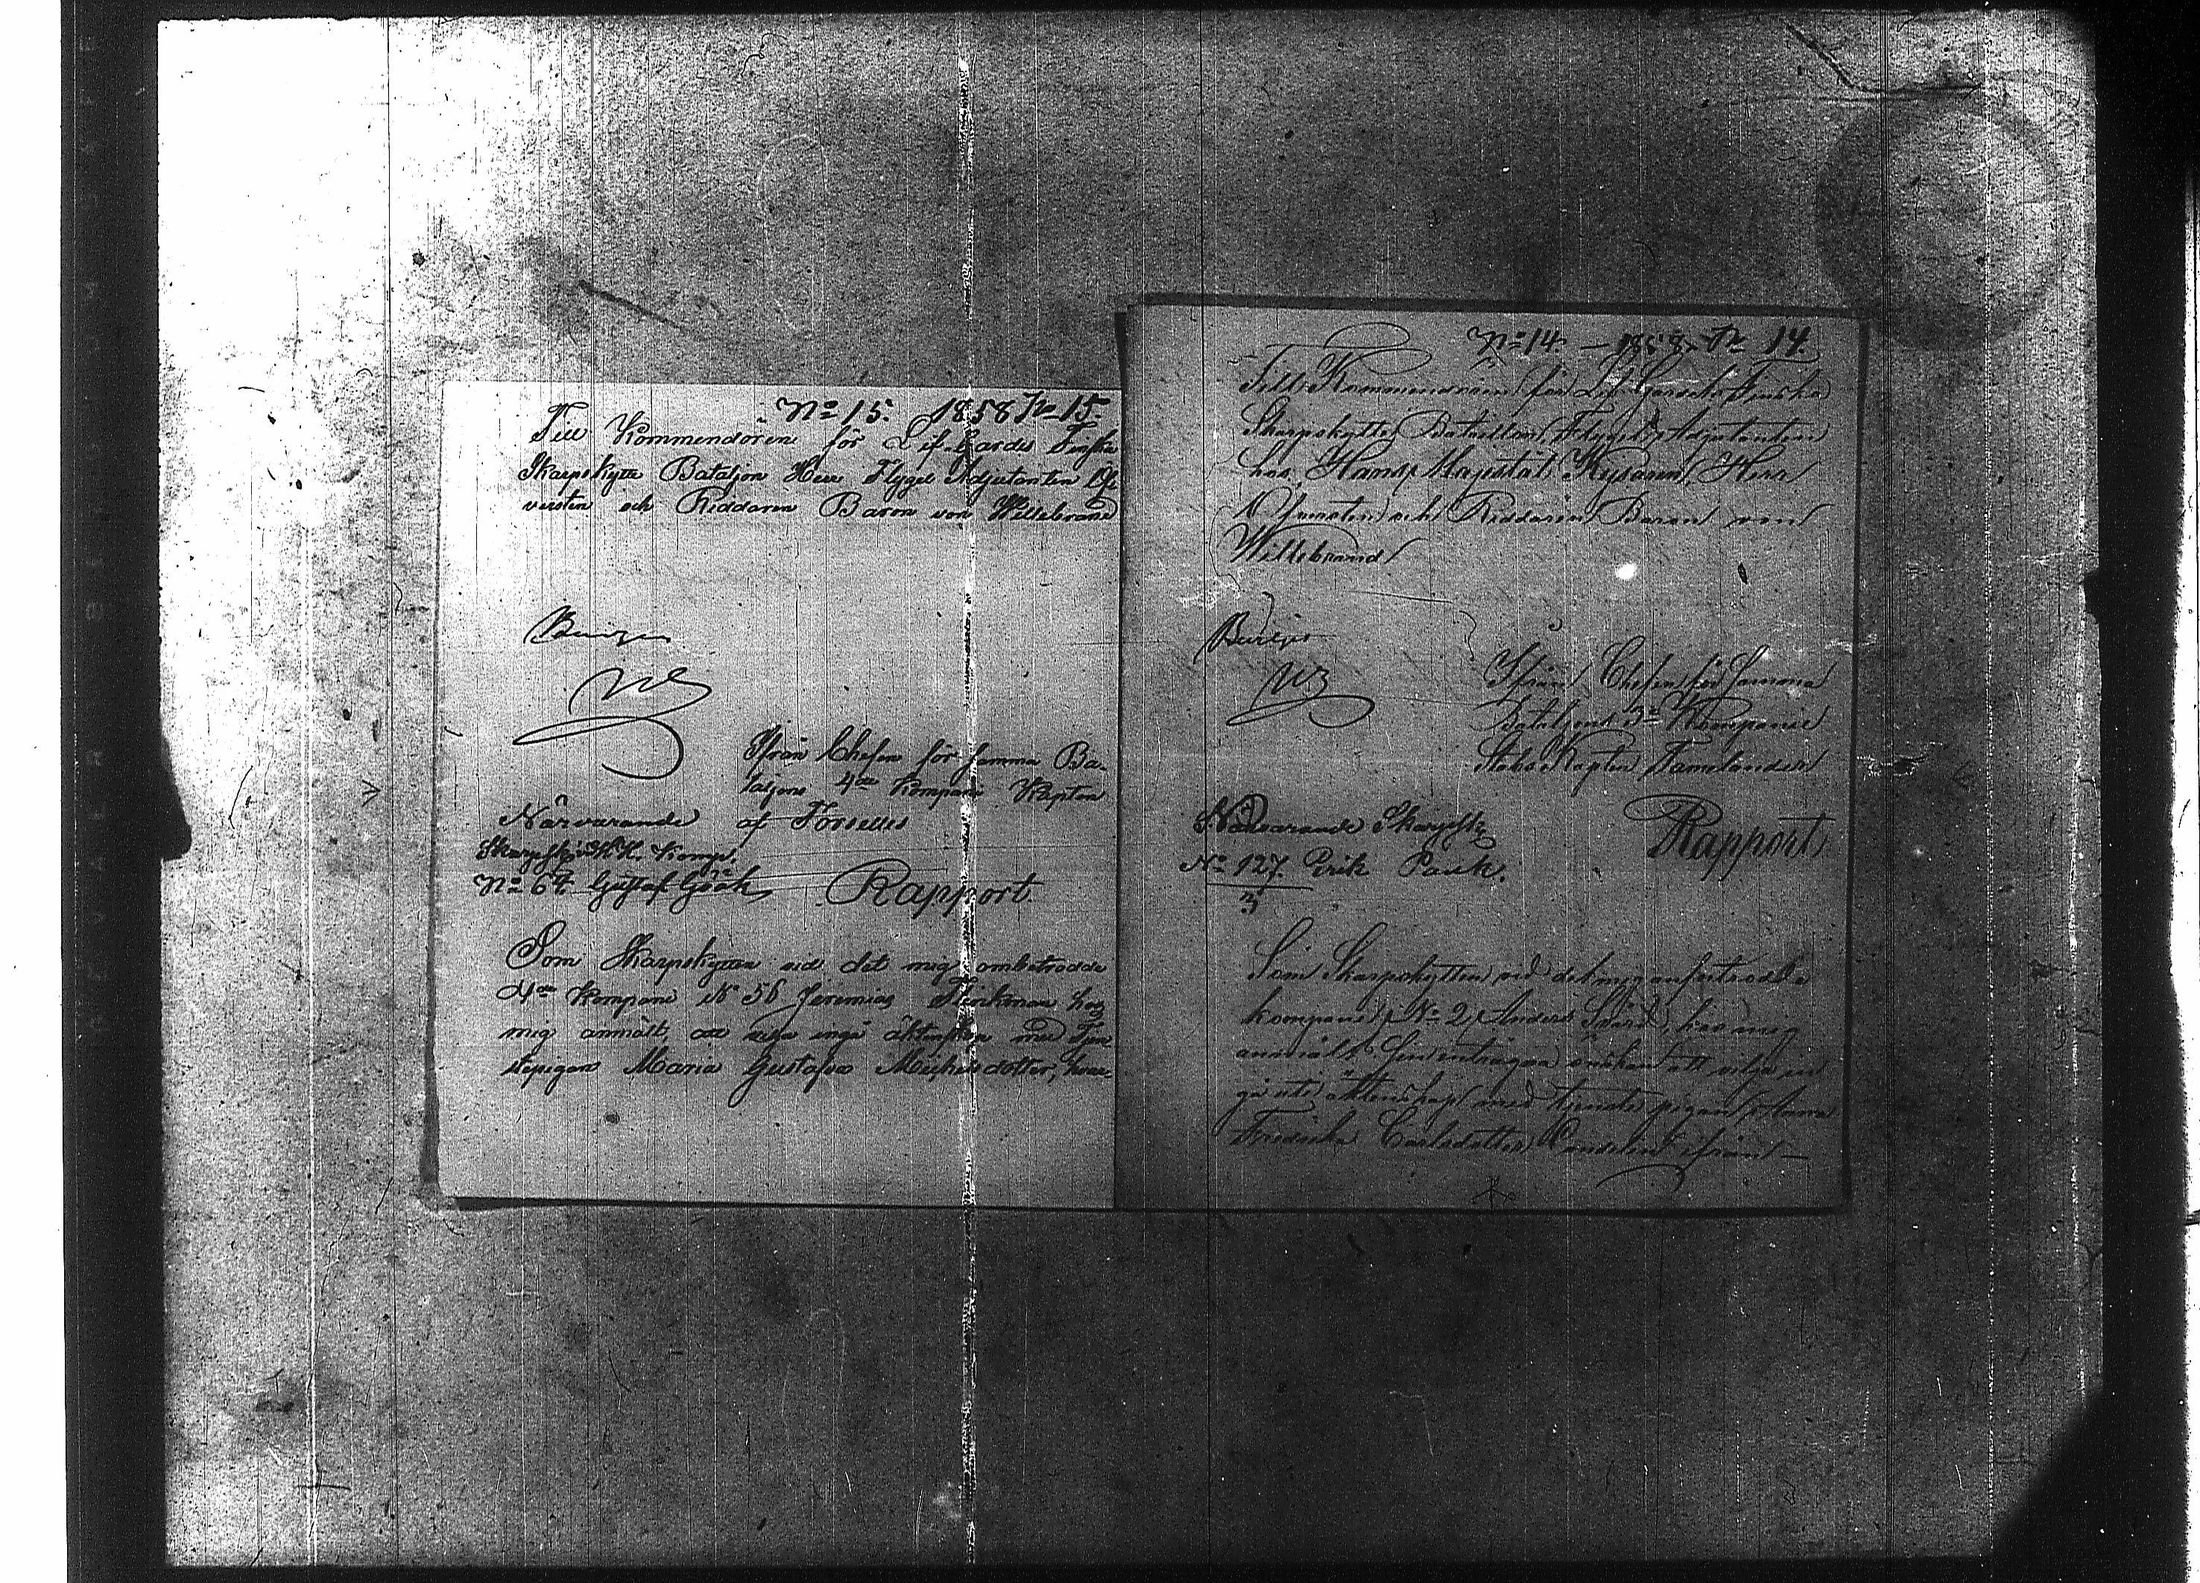 No 15. 1858 No 15.
Till Kommendören för Lif-Gardes Finska
Skarpskytte Bataljon Herr Flygel Adjutanten Öf
versten och Riddaren Baron von Willebrand
Ifrån Chefen för samma Ba-
taljons 4de Kompani Kapten
af Forselles
Närvarande
Komp.
No 67. Gustaf Göök
Rapport
Som Skarpskytten vid det mig ombetrodda
4de Kompani No 56 Jeremias hos
mig anmält, att vilja ingå äktenskap med Tjen
stepigan Maria Gustafva Michelsdotter, hvar-
No 14. – 1858 No 14.
Till Kommendören för Lif-Gardets Finska
Skarpskytte Bataillon, Flygel-Adjutanten
hos Hans Majestät Kejsaren, Herr
Öfversten och Riddaren Baron von
Willebrand
Ifrån Chefen för samma
Bataljons 3e Kompanie
Stabs Kapten Tamelander
Närvarande Skarpsk
No 127. Erik Pask.
3
Rapport
Som Skarpskytten vid det mig anförtrodda
kompani, No 2, Anders Svärd hos mig
anmält sin enträgna önskan att vilja in
gå uti äktenskap med tjenste pigan Anna
Fredrika Carlsdotter ifrån –